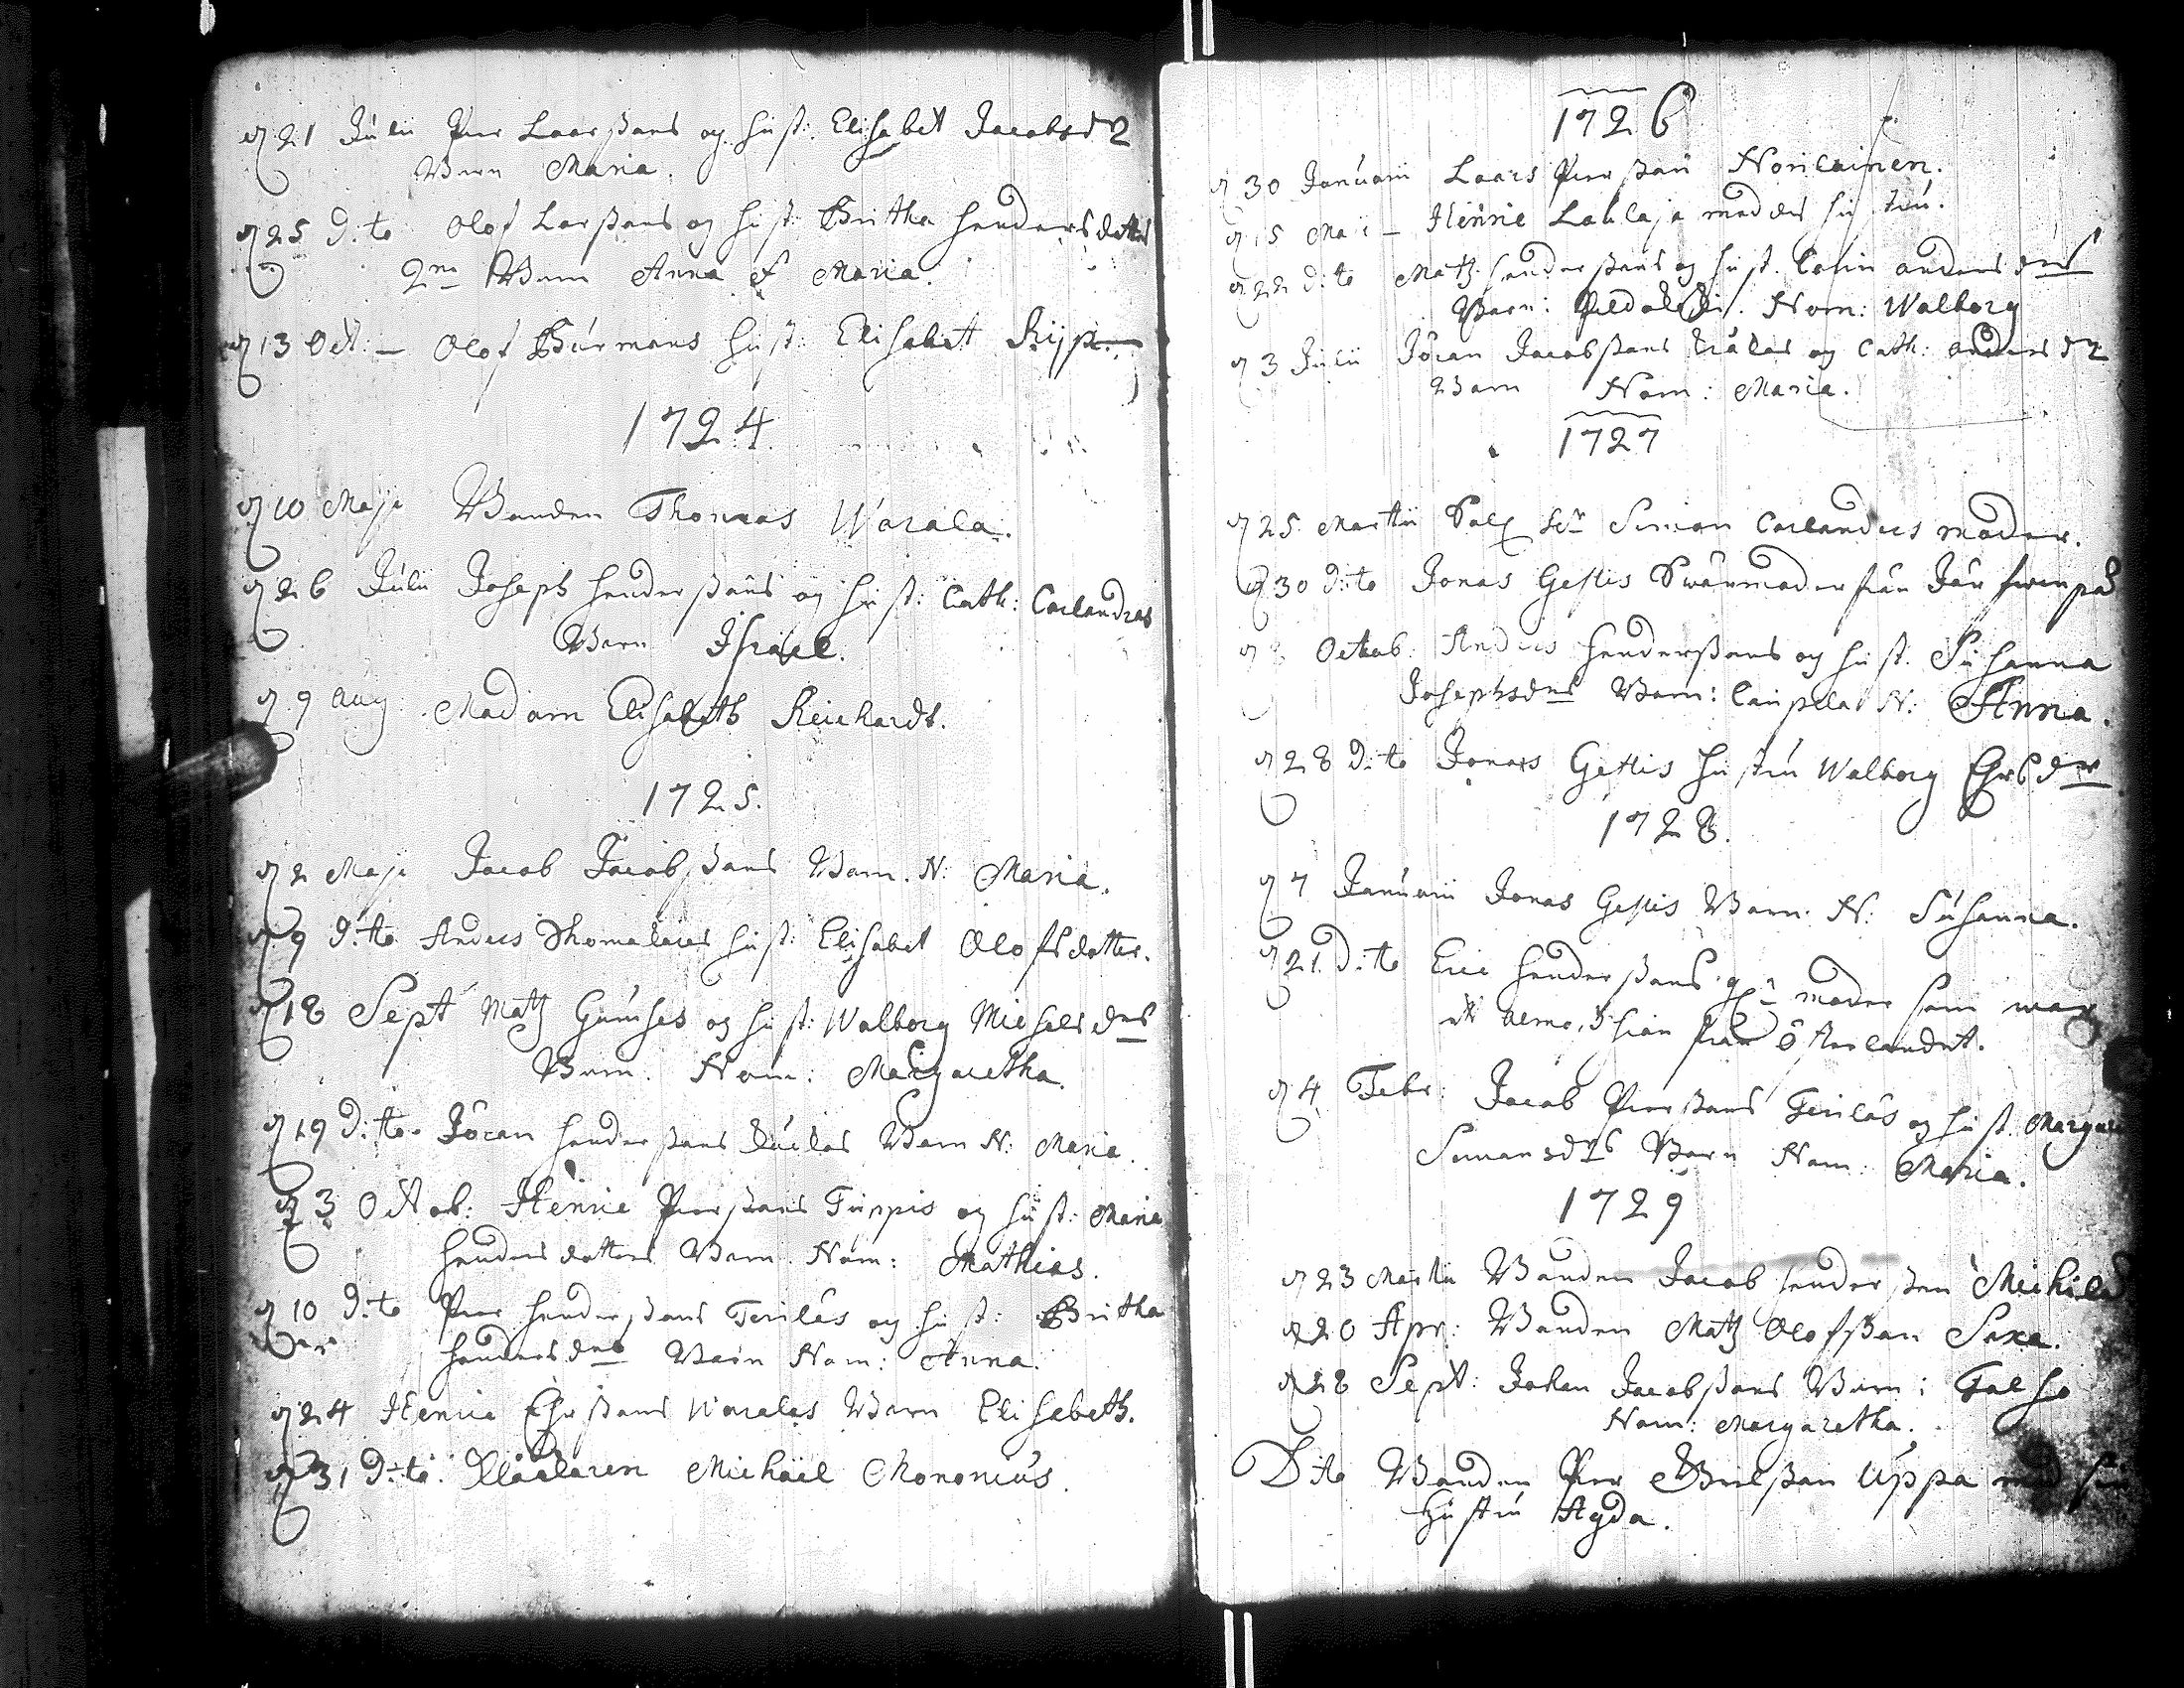 d 21 Julii Per Larssons og hust: Elisabet Jacobsd2
Barn Maria.
d 25 D:to Olof Larssons og hust: Britha Hendersdotters
2ne Barn Anna & Maria.
d 13 Oct: — Olof Burmans hust: Elisabet Rijp.
1724
d 10 Maji Bonden Thomas Warala.
d 26 Julii Joseph Henderssons og hust: Cath: Carlandras
Barn Israel.
d 9 Aug: Madam Elisabeth Reichardt.
1725.
d 2 Maji Jacob Jacobssons Barn. N: Maria.
d 9 D:to Anders Thomalaies hust: Elisabet Olofsdotter.
d 18 Sept Matz Gumses og hust: Walborg Michelsdrs
Barn. Nom: Margaretha.
d 19 D:to. Jöran Henderssons Barn N: Maria.
d 3 Octob: Henric Perssons Tuppis og hust: Maria
Hendersdotters Barn. Nom: Mathias.
d 10 D:to Per Henderssons Terilás og hust: Britha
Hendersdrs Barn Nom: Anna.
d 24 Henric Warelas Barn Elisabeth.
d 31 D:to. Klåckaren Michaël Mononius.
1726
d 30 Januarii Laars Persson Norilainen.
d 15 Maii — Henric Lahlaja med des hustru.
d 22 D:to Matz Henderssons og hust. Carin andersdrs
Barn: Nom: Walborg
d 3 Julii Jöran Jacobssons og Cath: andersd2
Barn Nom: Maria.
1727
d 25. Martii Sal Hr Simon Carlanders moder.
d 30 D:to Jonas Gestis Swärmoder från
d 3 Octob. Anders Henderssons og hust. Susanna
Josephsdrs Barn: Caupila N: Anna.
d 28 D:to Jonas Gestis hustru Walborg
1728.
d 7 Januarii Jonas Gestis Barn. N: Susanna.
d 21. D:to Eric Henderssons moder som war
från Österlandet.
d 4 Febr: Jacob Perssons Terilás og hust. Margar
Simonsdrs Barn Nom: Maria.
1729
d 23 Martii Bonden Jacob Hendersson Michila
d 20 Apr: Bonden Matz Olofsson Saxa.
d 28 Sept: Johan Jacobssons Barn:
Nom: Margaretha.
Dito Bonden Per Uppa med sin
Hustru Agda.